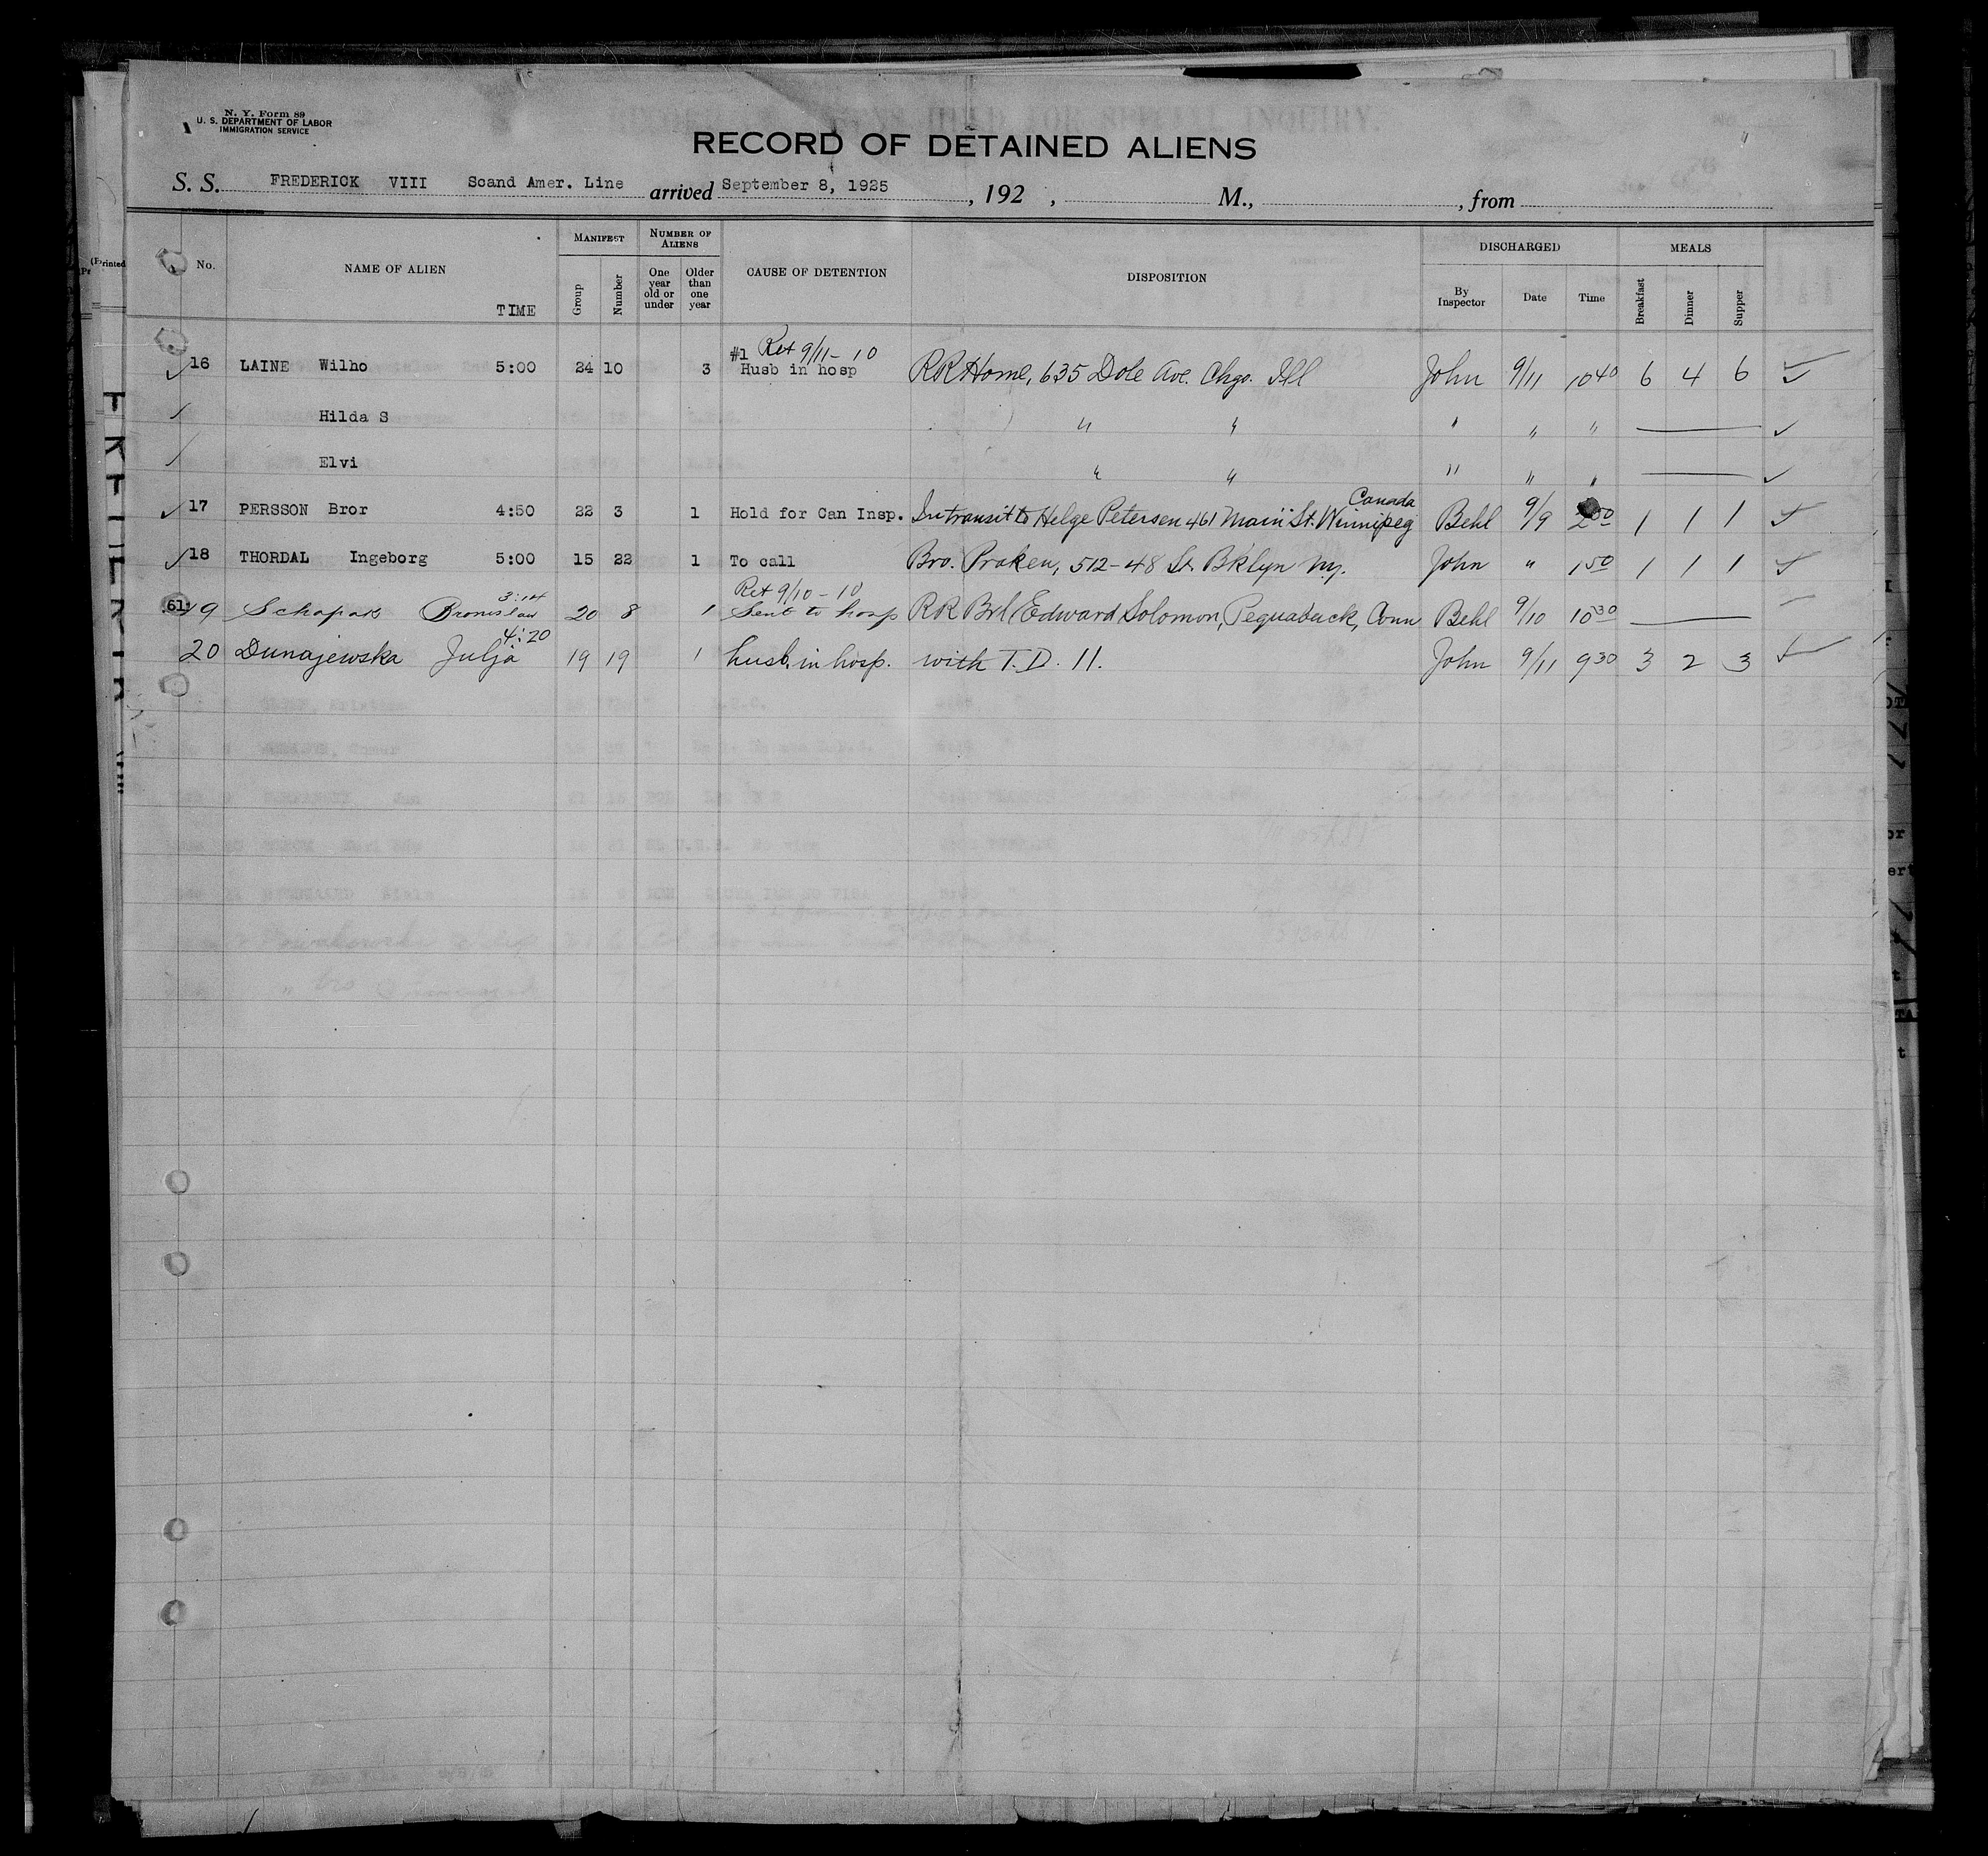 N. Y. Form 89
U. S. DEPARTMENT OF LABOR
IMMIGRATION SERVICE
RECORD OF DETAINED ALIENS
S. S. FREDERICK VIII Scand Amer. Line arrived September 8, 1925, 192 , M., , from
No. NAME OF ALIEN TIME MANIFEST Group Number NUMBER OF ALIENS One year old or under Older than one year CAUSE OF DETENTION DISPOSITION DISCHARGED By Inspector Date Time MEALS Breakfast Dinner Supper
#1 Ret 9/11 - 10
16 LAINE Wilho 5:00 24 10 3 Husb in hosp RR Home, 635 Dole Ave. Chgo. Ill John 9/11 10 40 6 4 6
Hilda S " " " " "
Elvi " " " " "
17 PERSSON Bror 4:50 22 3 1 Hold for Can Insp. In transit to Helge Petersen 461 Main St. Winnipeg Canada Behl 9/9 2 50 1 1 1
18 THORDAL Ingeborg 5:00 15 22 1 To call Bro. Praken, 512-48 St. Bklyn N.Y. John " 1 50 1 1 1
Ret 9/10 - 10
19 Schapas Bronislaw 20 8 1 Sent to hosp RR Edward Solomon, Pequabuck, Conn Behl 9/10 10 30
20 Dunajewska Julja 4:20 19 19 1 husb. in hosp. with T. D. 11. John 9/11 9 30 3 2 3